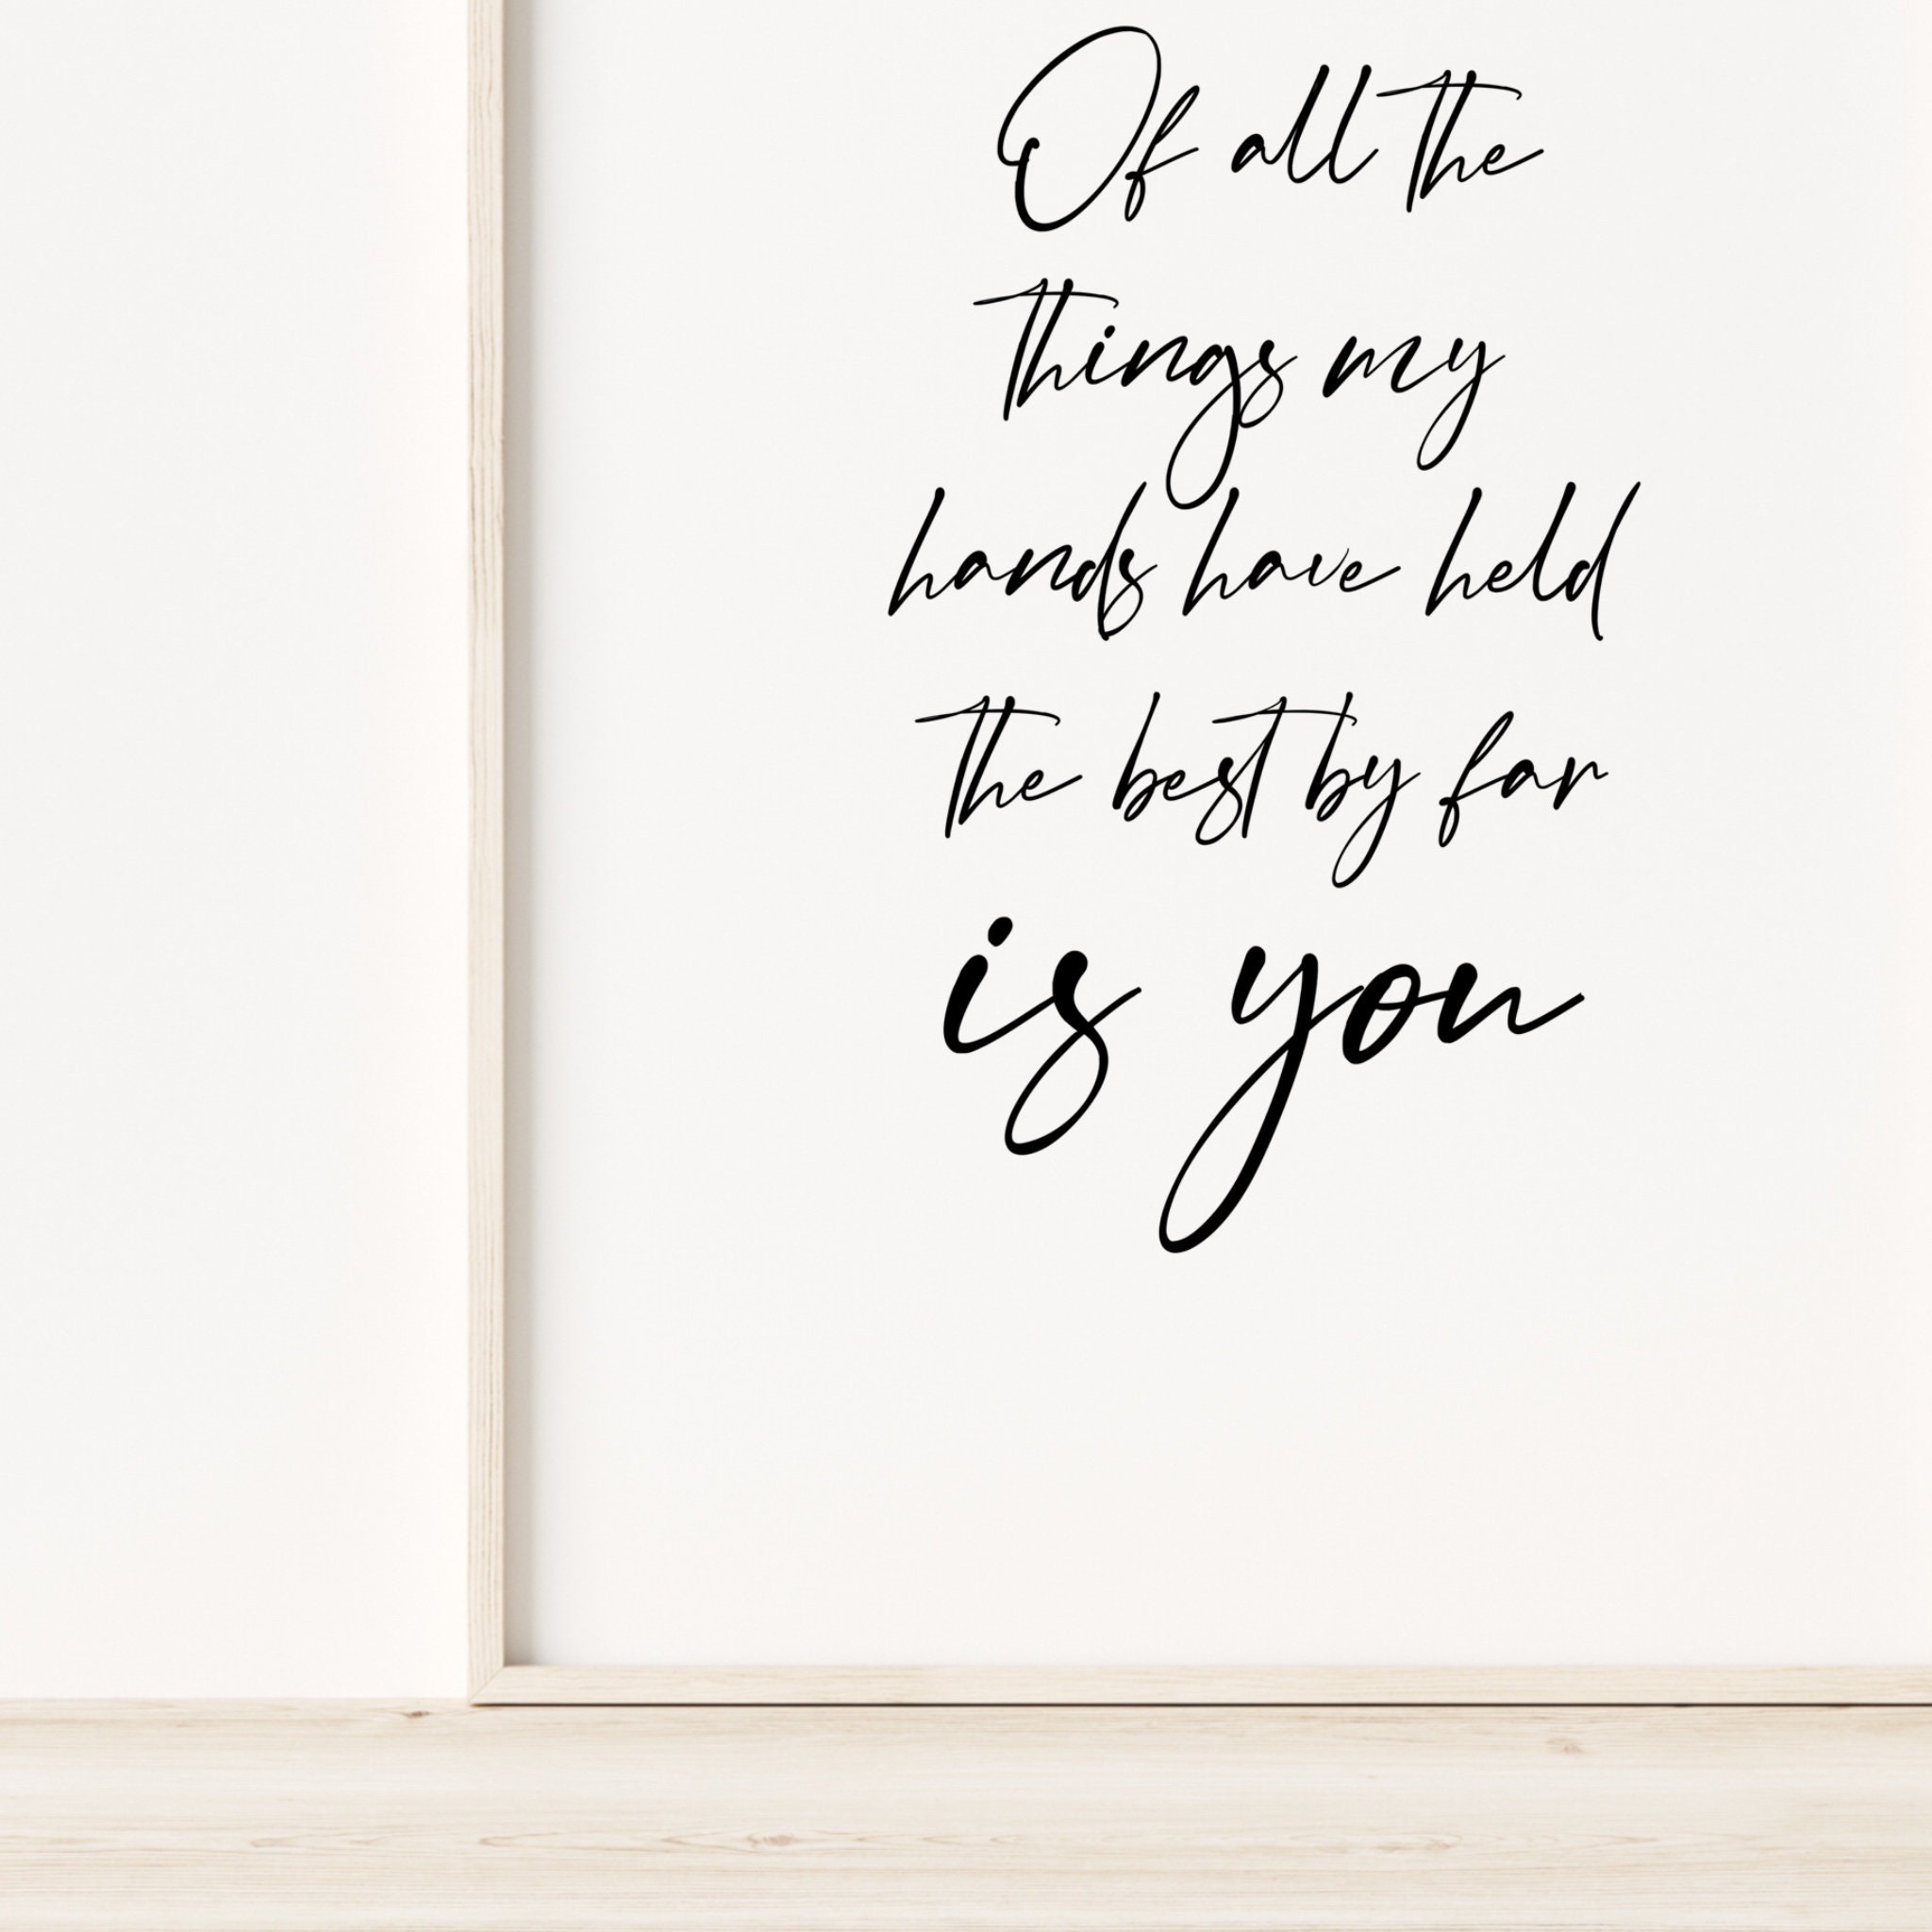 Of all the
things my
hands have held
the best by far
is you